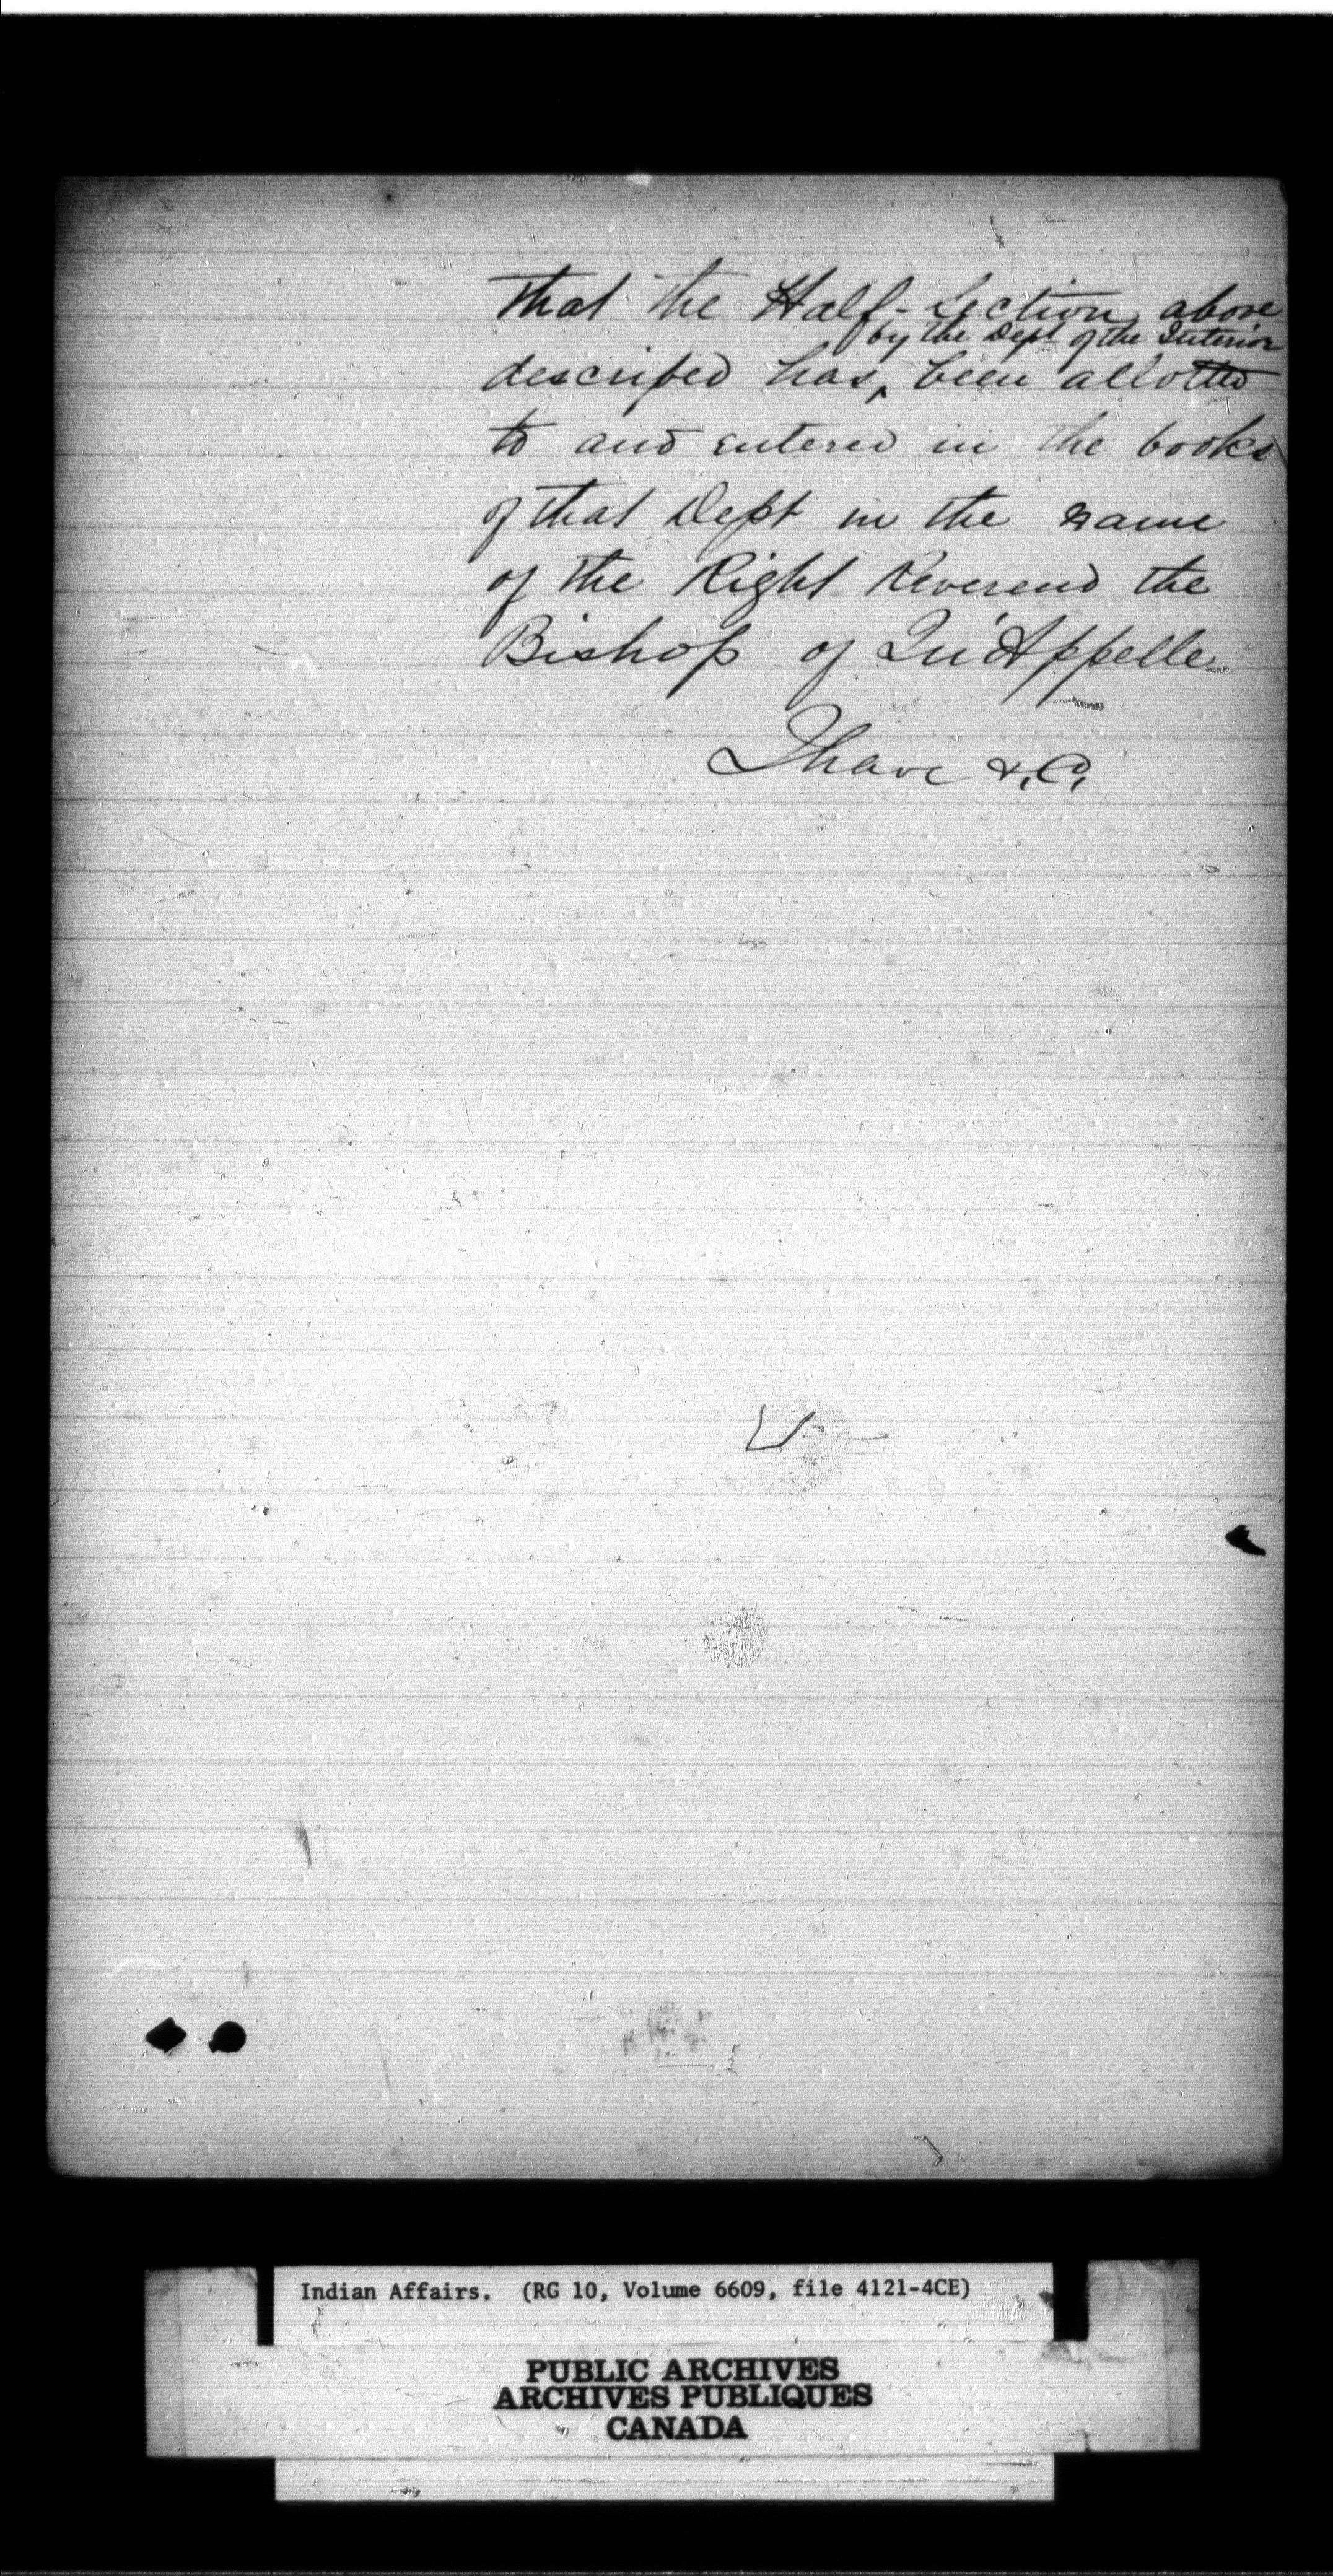 that the Half-Section above
by the Dept of the Interior
described has ‸ been allotted
to and entered in the books
of that Dept in the name
of the Right Reverend the
Bishop of Qu'Appelle.
I have &.C.
Indian Affairs. (RG 10, Volume 6609, file 4121-4CE)
PUBLIC ARCHIVES
ARCHIVES PUBLIQUES
CANADA